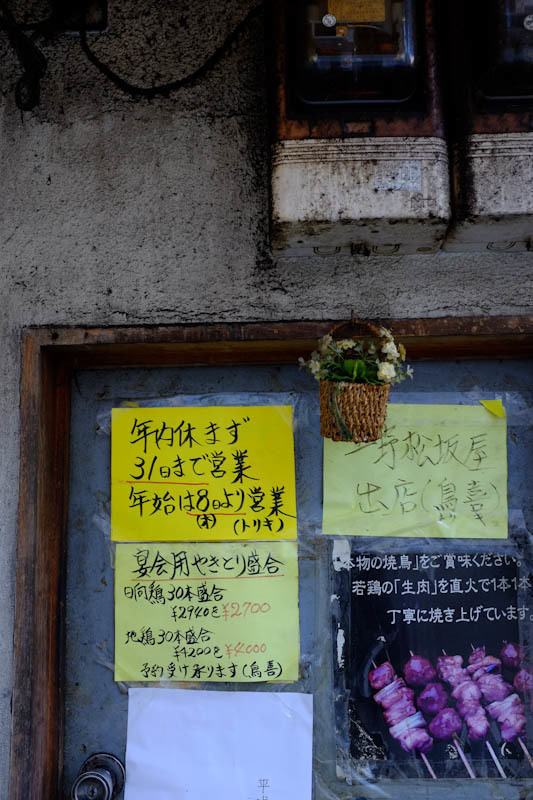 年内休まず
31日まで営業
年始は8日より営業
(木) (トリキ)
宴会用やきとり盛合
日向鶏30本盛合
¥2940を¥2,700
地鶏30本盛合
¥4200を¥4,000
予約受け承ります(鳥喜)
野松坂屋
出店(鳥喜)
本物の焼鳥」をご賞味ください。
若鶏の「生肉」を直火で1本1本
丁寧に焼き上げています。
平